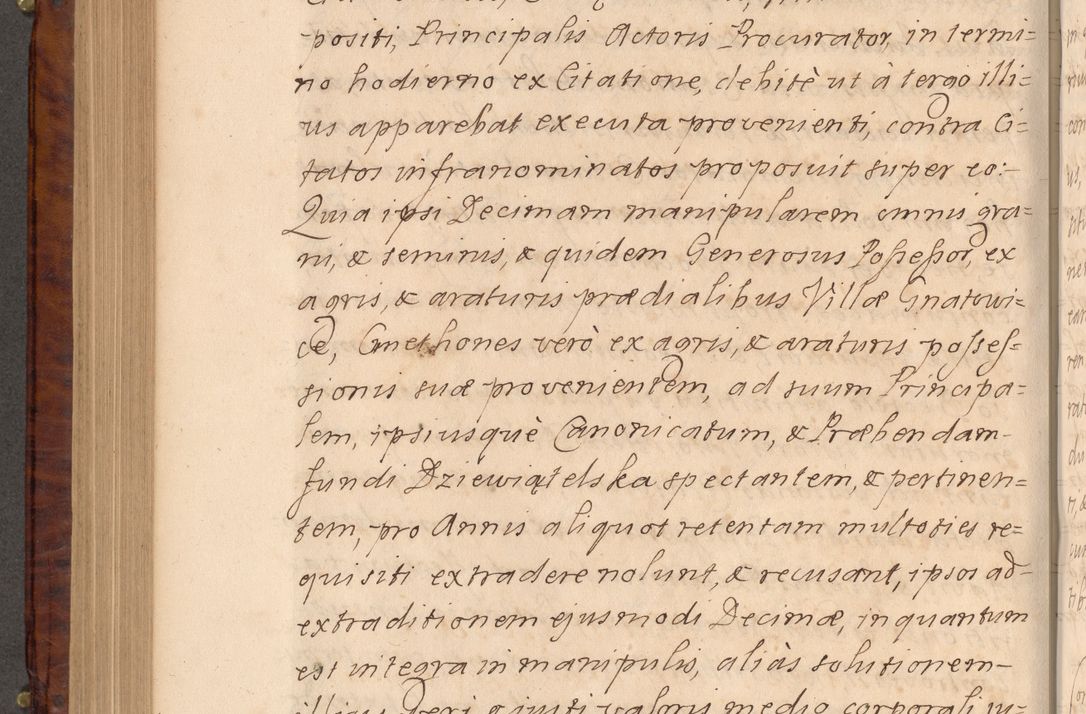 positi, Principalis Actoris Procurator, in termi=
no hodierno ex Citatione, debitè ut à tergo illi=
us apparebat executa provenienti, contra Ci=
tatos infranominatos proposuit super eo:-
Quia ipsi Decimam manipularem omnis gra=
ni, & seminis, & quidem Generosus Possessor, ex
agris, & araturis prædialibus Villæ Gnatowi=
ce, Cmethones verò ex agris, & araturis posses=
sionis suæ provenientem, ad suum Principa=
lem, ipsiusquè Canonicatum, & Præbendam-
fundi Dziewiątelska spectantem, & pertinen=
tem, pro Annis aliquot retentam multoties re=
quisiti extradere nolunt, & recusant, ipsos ad-
extraditionem ejusmodi Decimæ, in quantum
est integra in manipulis, aliàs solutionem-
illius veri & justi valoris medio corporali ju=